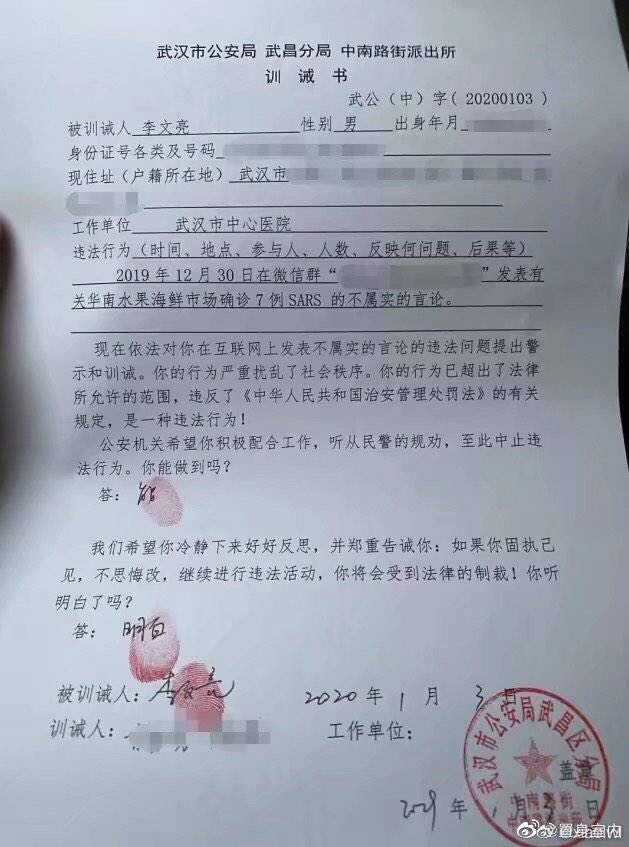 武汉市公安局 武昌分局 中南路街派出所
训 诫 书
武公（中）字（20200103）
被训诫人 李文亮 性别 男 出身年月
身份证号各类及号码
现住址（户籍所在地） 武汉市
工作单位 武汉市中心医院
违法行为（时间、地点、参与人、人数、反映何问题、后果等）
2019年12月30日在微信群“ ”发表有
关华南水果海鲜市场确诊7例SARS的不属实的言论。
现在依法对你在互联网上发表不属实的言论的违法问题提出警
示和训诫。你的行为严重扰乱了社会秩序。你的行为已超出了法律
所允许的范围，违反了《中华人民共和国治安管理处罚法》的有关
规定，是一种违法行为！
公安机关希望你积极配合工作，听从民警的规劝，至此中止违
法行为。你能做到吗？
答：能
我们希望你冷静下来好好反思，并郑重告诫你：如果你固执己
见，不思悔改，继续进行违法活动，你将会受到法律的制裁！你听
明白了吗？
答：明白
被训诫人：李文亮 2020年1月3日
训诫人： 工作单位：
武汉市公安局武昌区分局
中南路街
盖章
年1月3日
@置身室内